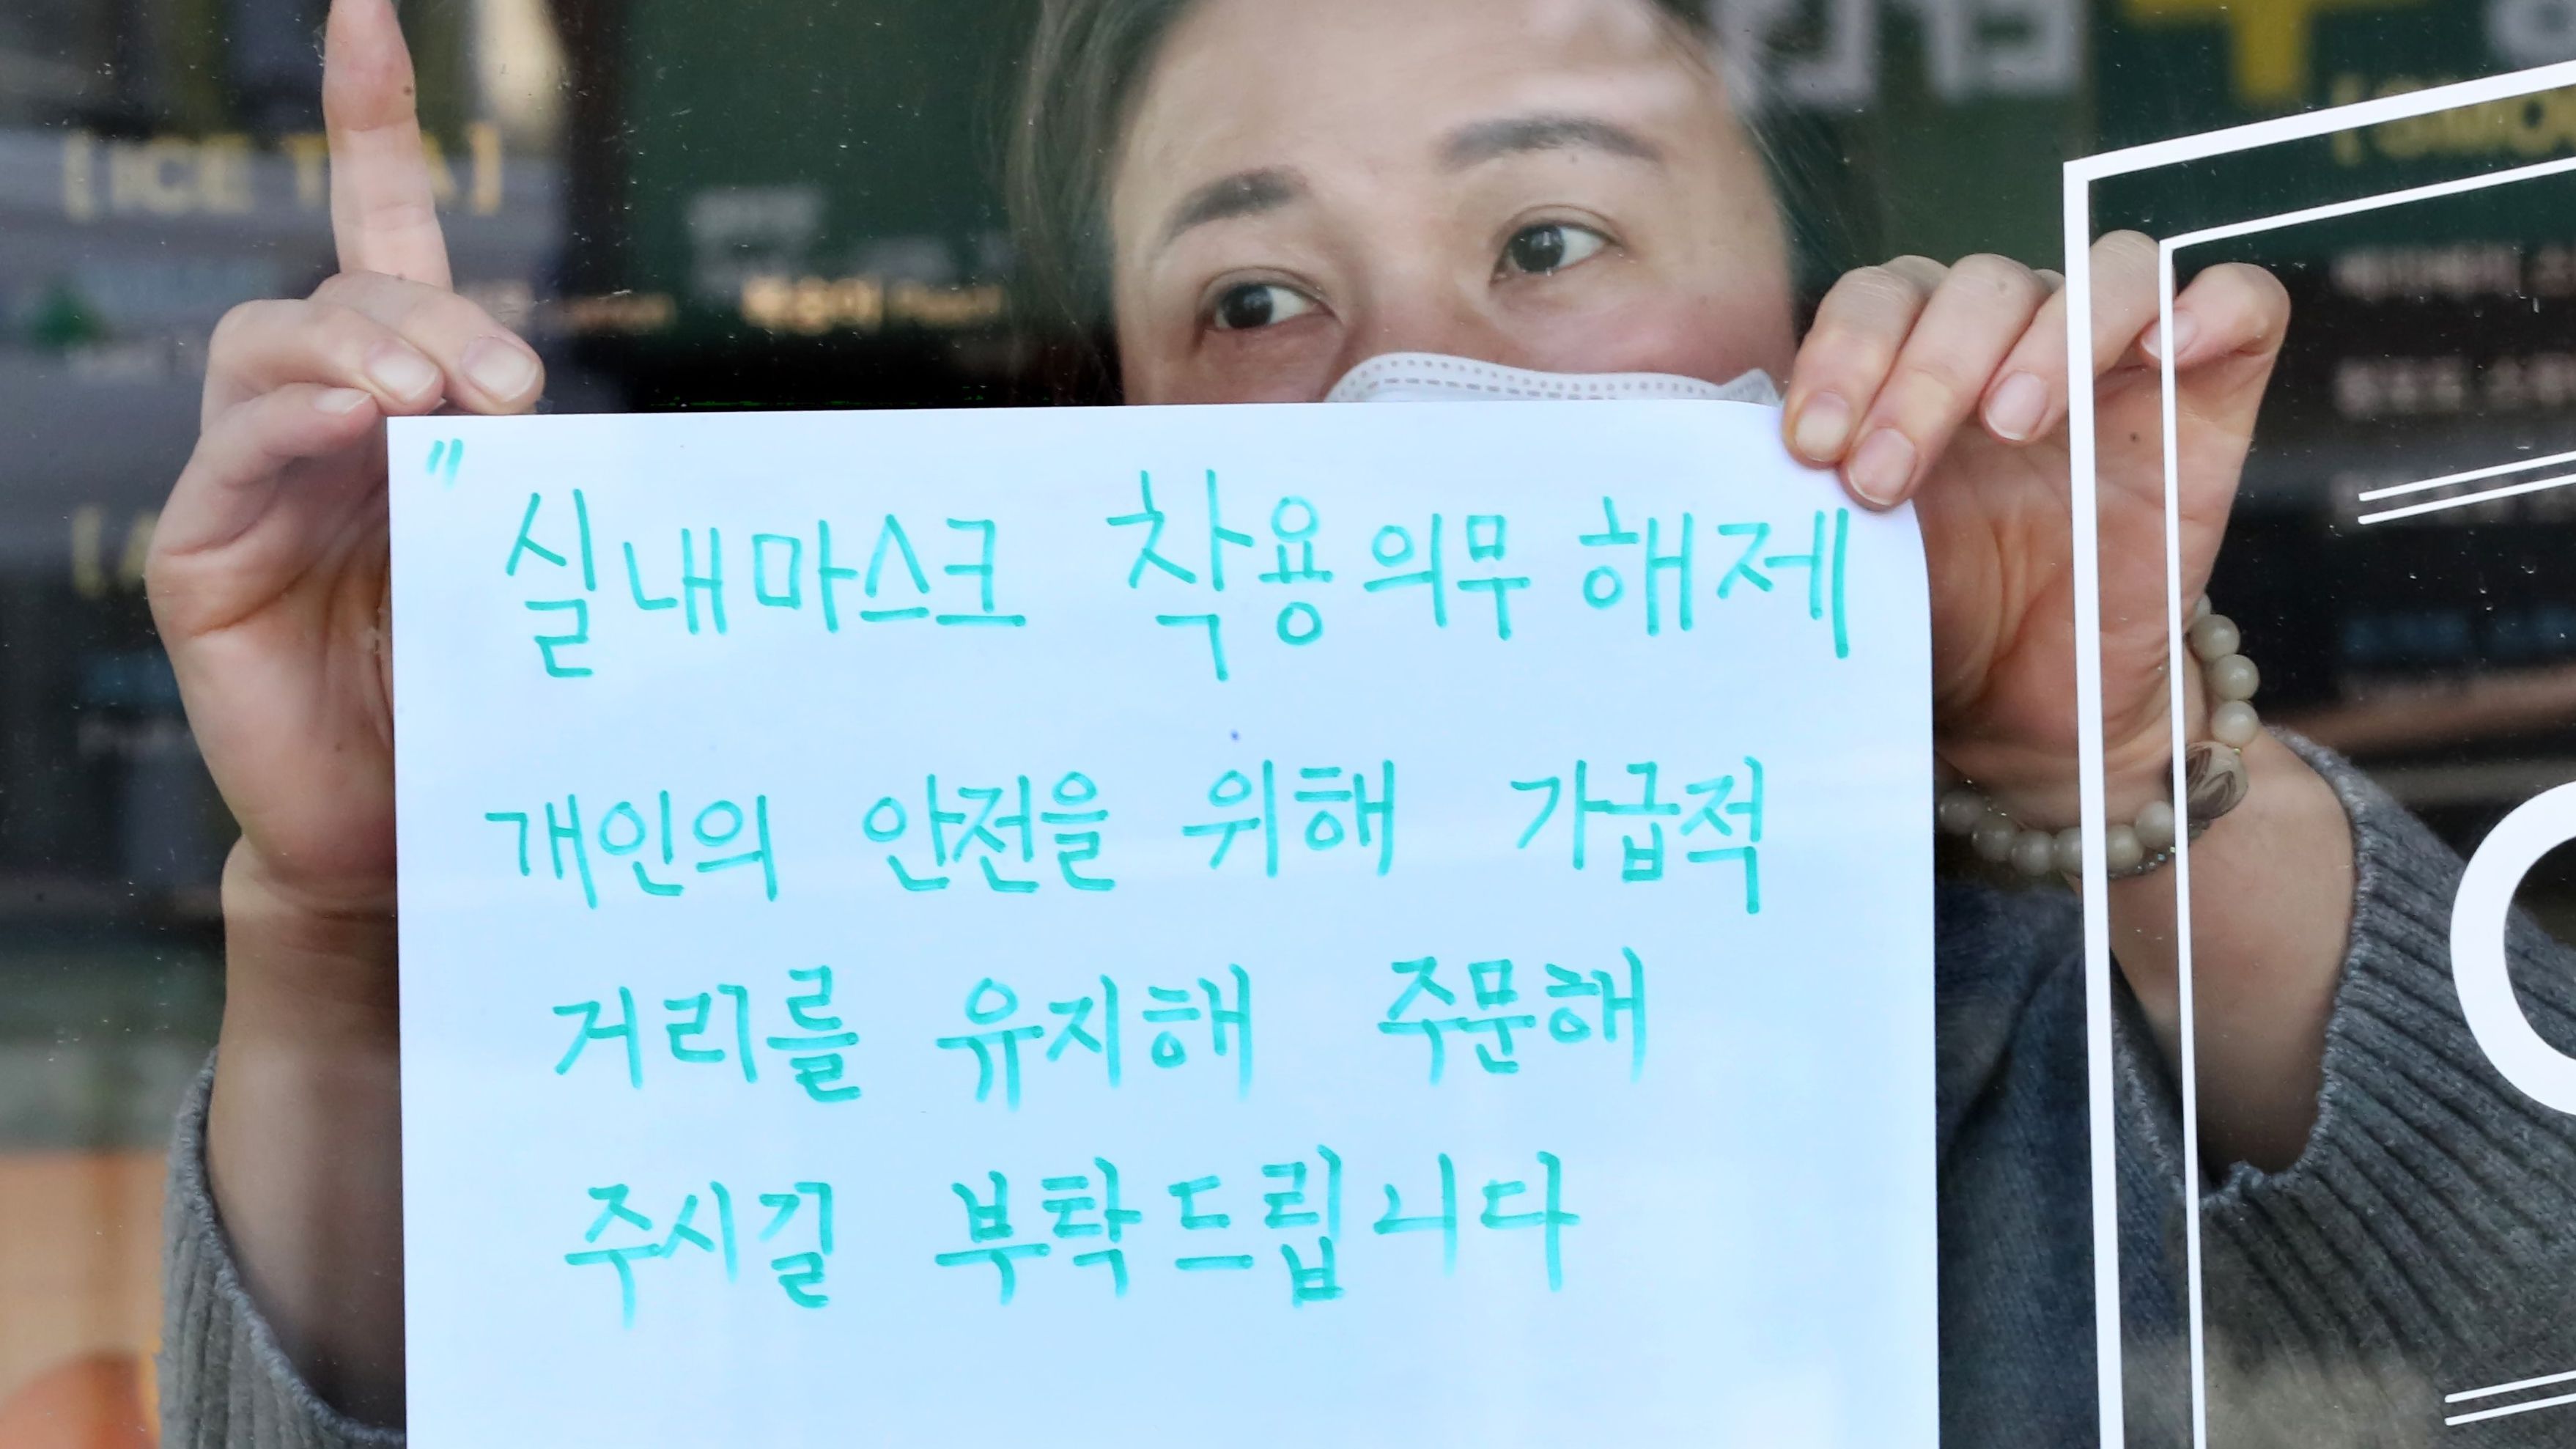 [ICE TEA]
"
실내마스크 착용의무 해제
개인의 안전을 위해 가급적
거리를 유지해 주문해
주시길 부탁드립니다